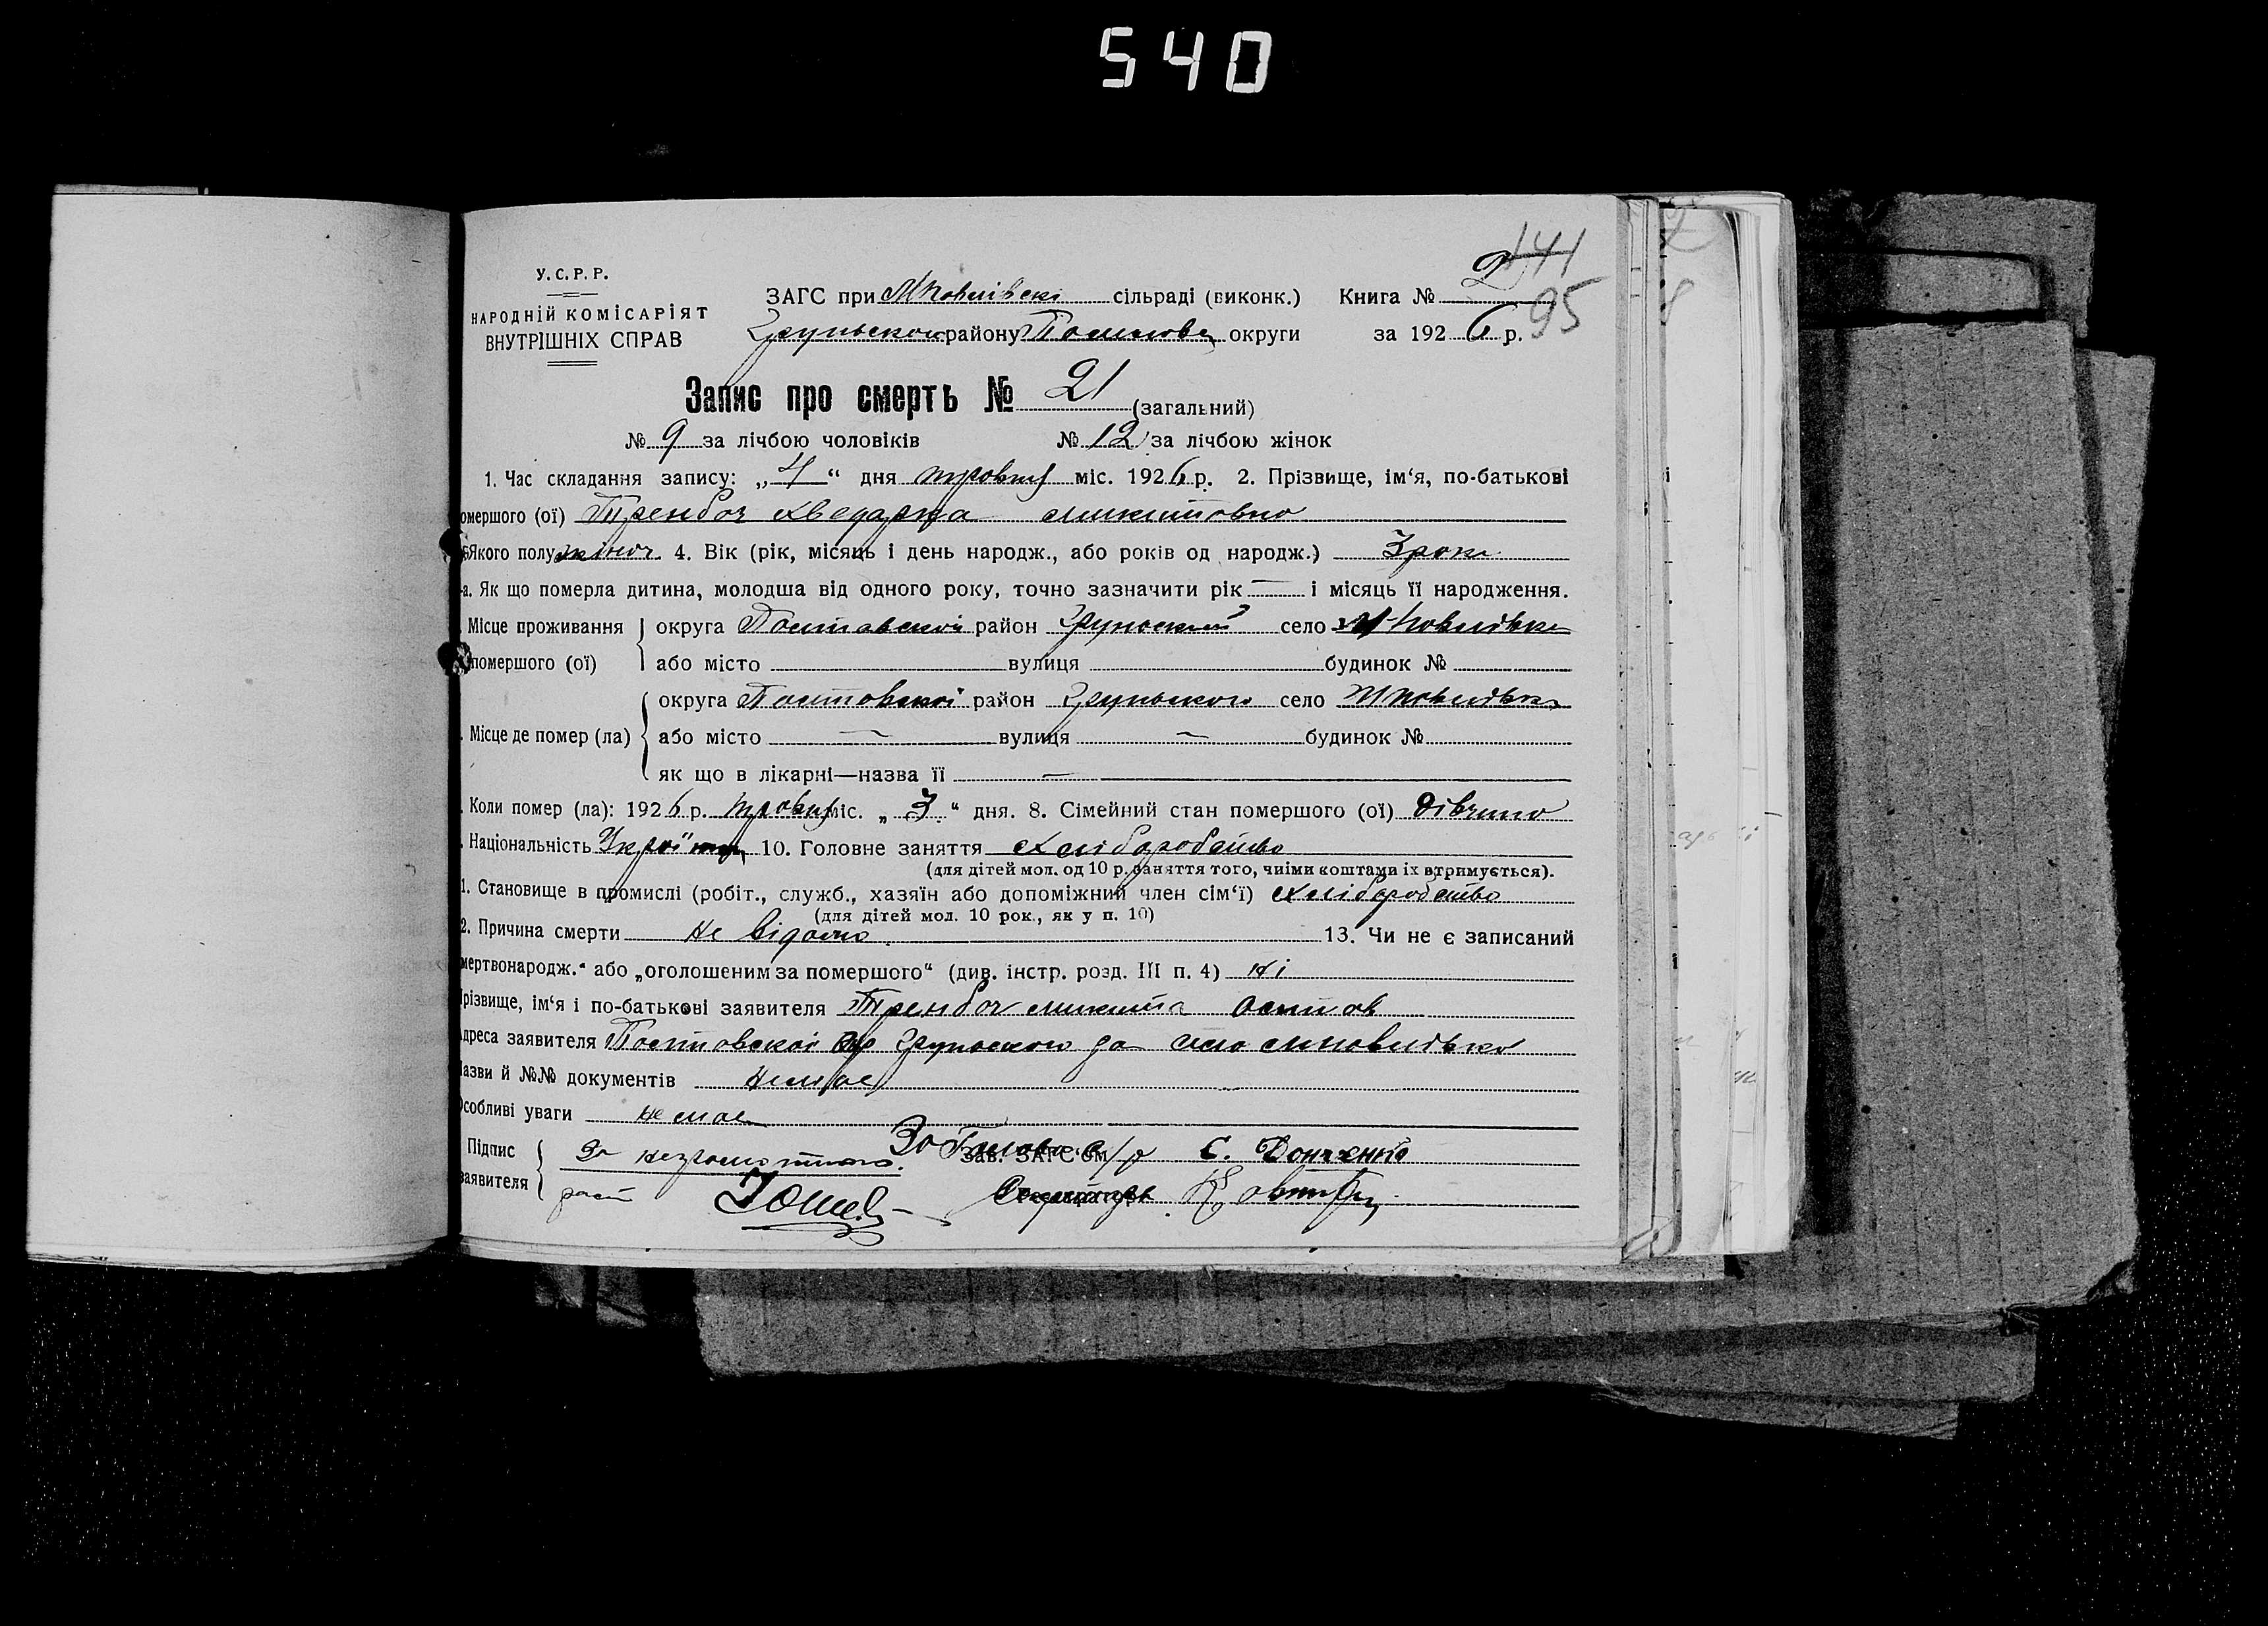 540
141
95
У.С.Р.Р.
НАРОДНІЙ КОМІСАРІЯТ
ВНУТРІШНІХ СПРАВ
ЗАГС при М Павлівскі сільраді (виконк.) Книга № 2
Грунськом району Полтавс округи за 1926 р.
Запис про смерть № 21 (загальний)
№ 9 за лічбою чоловіків № 12 за лічбою жінок
1. Час складання запису: „4“ дня травня міс. 1926 р. 2. Прізвище, ім‘я, по-батькові
омершого (ої) Трембач Хведарка микитовна
Якого полу жіноч 4. Вік (рік, місяць і день народж., або років од народж.) 3 роки
а. Як що померла дитина, молодша від одного року, точно зазначити рік — і місяць її народження.
Місце проживання округа Полтавскої район Грунський село М-Павлівка
помершого (ої) або місто вулиця будинок №
округа Полтавскої район Грунського село М Павлівка
Місце де помер (ла) або місто — вулиця — будинок №
як що в лікарні—назва її —
Коли помер (ла): 1926 р. травня міс. „3“ дня. 8. Сімейний стан помершого (ої) дівчина
Національність Україн 10. Головне заняття хліборобство
(для дітей мол. од 10 р. заняття того, чиїми коштами їх втримується).
1. Становище в промислі (робіт., служб., хазяїн або допоміжний член сім‘ї) хліборобство
(для дітей мол. 10 рок., як у п. 10)
2. Причина смерти не відомо 13. Чи не є записаний
мертвонародж.“ або „оголошеним за помершого“ (див. інстр. розд. III п. 4) ні
різвище, ім‘я і по-батькові заявителя Трембач микита
дреса заявителя Полтавскої окр Грунського ра село мпавлівка
Назви й №№ документів немає
Особливі уваги немає
Підпис За неграмотного За Голова с/р С. Донченко
Зав. ЗАГС‘ом
заявителя раст Секретарь